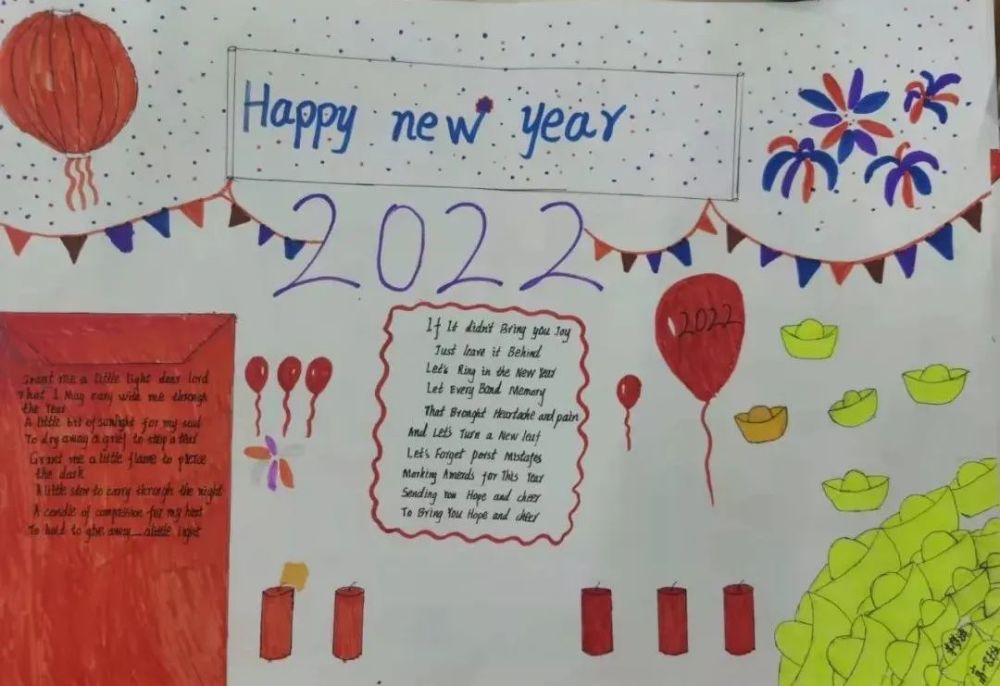 Happy new year
2022
2022
If It didn't Bring you Joy
Just leave it Behind
Let's Ring in the New Year
Let Every Band Memory
That Brought Heartache and pain
And Let's Turn a New leaf
Let's Forget Porst Mistafes
Marking Amends for This Year
Sending You Hope and cheer
To Bring You Hope and cheer
Grant me a little light dear lord
that I May cary with me through
the Year
A little bit of sunlight for my soul
To dry away a grief to stop a tear
Grant me a little flame to pierce
the dark
A little star to carry through the night
A candle of compassion for my
To hold to give away a little light